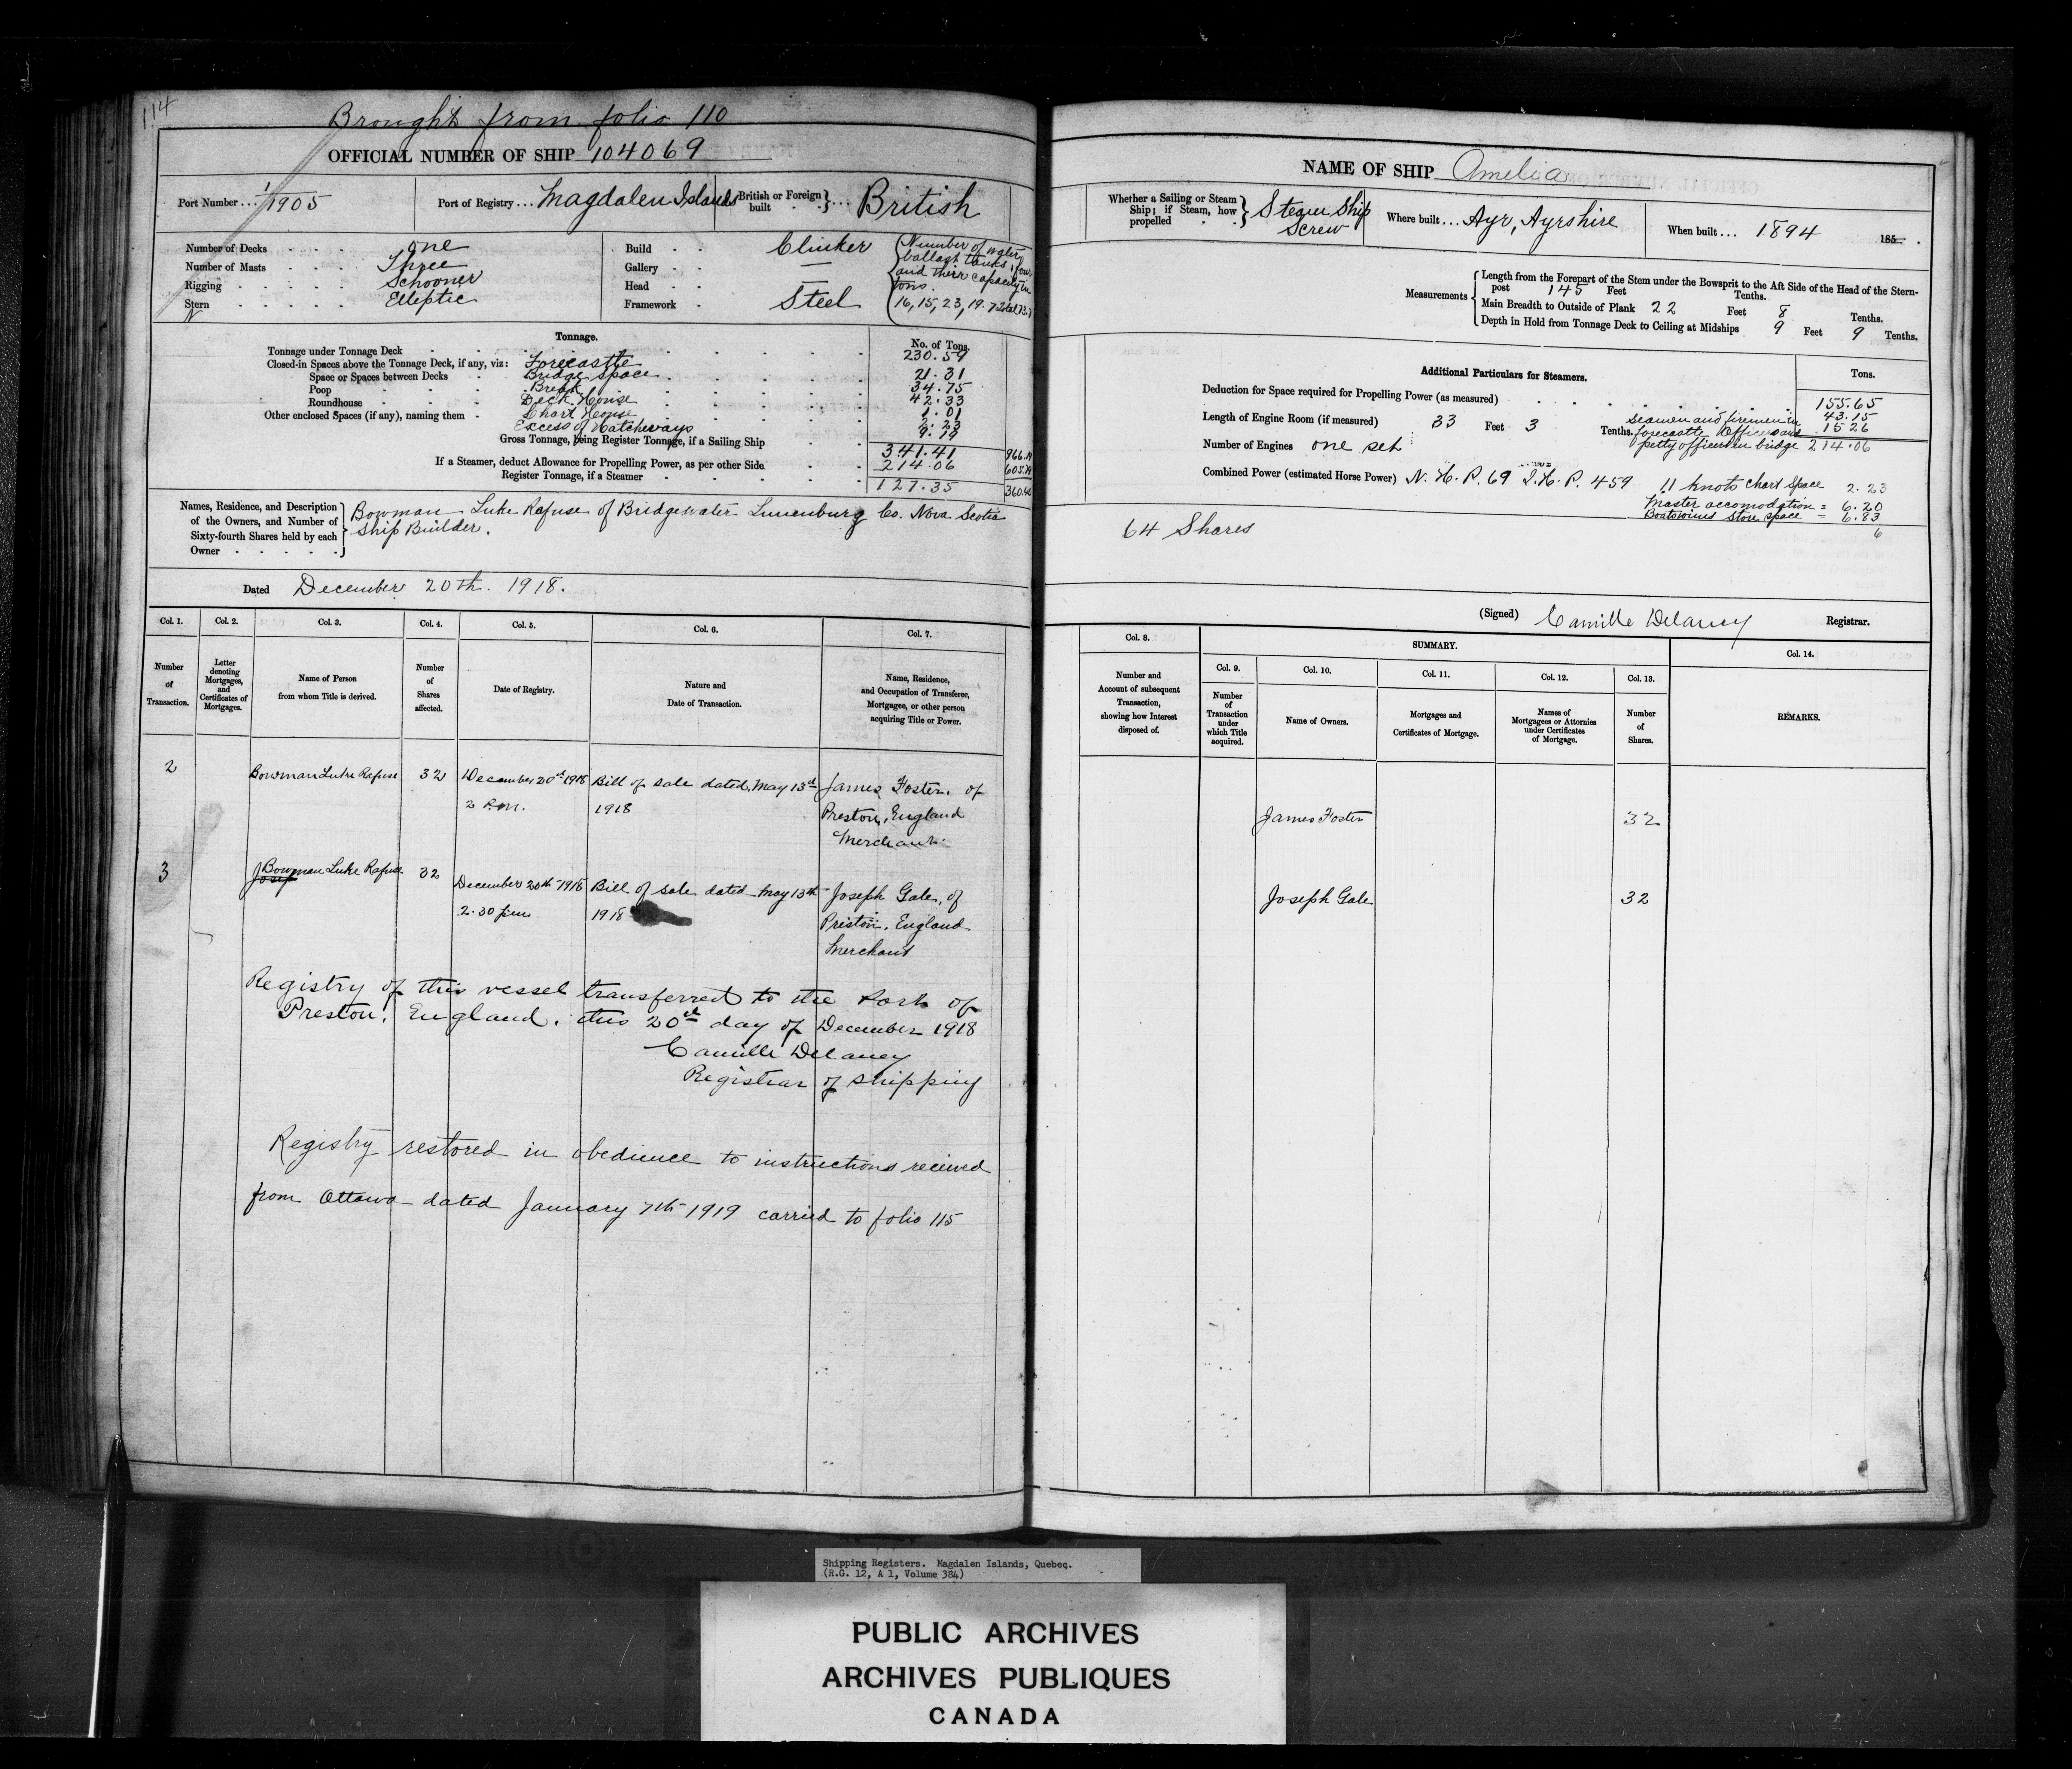 114
Brought from folio 110
OFFICIAL NUMBER OF SHIP 104069
Port Number ... 1/1905
Port of Registry ... Magdalen Islands
British or Foreign built } ... British
Number of Decks one
Number of Masts Three
Rigging Schooner
Stern Elliptic
N
Build Clinker
Gallery —
Head —
Framework Steel
Number of water
ballast tanks, four
and their capacity in
tons.
16, 15, 23, 19.
Tonnage.
No. of Tons.
Tonnage under Tonnage Deck 230.59
Closed-in Spaces above the Tonnage Deck, if any, viz: Forecastle 21.31
Space or Spaces between Decks Bridge space 34.75
Poop Break 42.33
Roundhouse Deck House 1.01
Other enclosed Spaces (if any), naming them - Chart House 2.23
Excess of Hatchways 9.19
Gross Tonnage, being Register Tonnage, if a Sailing Ship 341.41
If a Steamer, deduct Allowance for Propelling Power, as per other Side 214.06
Register Tonnage, if a Steamer 127.35
Names, Residence, and Description
of the Owners, and Number of
Sixty-fourth Shares held by each
Owner
Bowman Luke Rafuse of Bridgewater Lunenburg Co. Nova Scotia
Ship Builder.
Dated December 20th. 1918.
Col. 1. Col. 2. Col. 3. Col. 4. Col. 5. Col. 6. Col. 7.
Number of Transaction.
Letter denoting Mortgages, and Certificates of Mortgages.
Name of Person from whom Title is derived.
Number of Shares affected.
Date of Registry.
Nature and Date of Transaction.
Name, Residence, and Occupation of Transferee, Mortgagee, or other person acquiring Title or Power.
2 Bowman Luke Rafuse 32 December 20th 1918 Bill of sale dated May 13th James Foster, of
2 P.m. 1918 Preston, England
Merchant.
3 Josep Bowman Luke Rafuse 32 December 20th 1918 Bill of sale dated May 13th Joseph Gale, of
2.30 pm 1918 Preston, England
Merchant
Registry of this vessel transferred to the Port of
Preston, England, this 20th day of December 1918
Camille Delaney
Registrar of shipping
Registry restored in obedience to instructions received
from Ottawa dated January 7th 1919 carried to folio 115
NAME OF SHIP Amelia
Whether a Sailing or Steam
Ship; if Steam, how
propelled
Steam Ship
Screw
Where built ... Ayr, Ayrshire
When built ... 1894 185
Measurements
Length from the Forepart of the Stem under the Bowsprit to the Aft Side of the Head of the Stern-
post 145 Feet Tenths.
Main Breadth to Outside of Plank 22 Feet 8 Tenths.
Depth in Hold from Tonnage Deck to Ceiling at Midships 9 Feet 9 Tenths.
Additional Particulars for Steamers.
Tons.
Deduction for Space required for Propelling Power (as measured) 155.65
Length of Engine Room (if measured) 33 Feet 3 Tenths.
Seamen and firemen in 43.15
forecastle Officers and 15 26
petty officers in bridge 214.06
Number of Engines one set
Combined Power (estimated Horse Power) N. H. P. 69 I. H. P. 459 11 knots
Chart Space 2.23
Master accomodation = 6.20
Boatswains Store space = 6.83
6
64 Shares
(Signed) Camille Delaney Registrar.
Col. 8. SUMMARY. Col. 14.
Col. 9. Col. 10. Col. 11. Col. 12. Col. 13.
Number and Account of subsequent Transaction, showing how Interest disposed of.
Number of Transaction under which Title acquired.
Name of Owners.
Mortgages and Certificates of Mortgage.
Names of Mortgagees or Attornies under Certificates of Mortgage.
Number of Shares.
REMARKS.
James Foster 32
Joseph Gale 32
Shipping Registers. Magdalen Islands, Quebec.
(R.G. 12, A 1, Volume 384)
PUBLIC ARCHIVES
ARCHIVES PUBLIQUES
CANADA